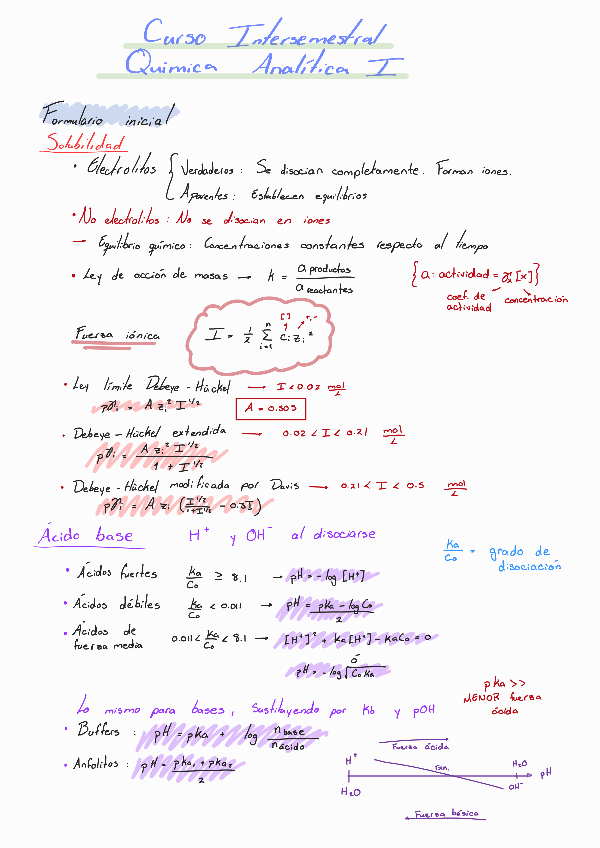 Curso Intersemestral
Química Analítica I
Formulario inicial
Solubilidad
• Electrolitos { Verdaderos: Se disocian completamente. Forman iones.
Aparentes: Establecen equilibrios
• No electrolitos: No se disocian en iones
→ Equilibrio químico: Concentraciones constantes respecto al tiempo
• Ley de acción de masas → K = a productos / a reactantes
{a: actividad = γi [x]}
coef. de actividad
concentración
Fuerza iónica
I = 1/2 Σ Ci zi²
n
i=1
[ ]
+,-
• Ley límite Debeye-Hückel → I < 0.02 mol/L
pγi = A zi² I^1/2
A = 0.509
• Debeye-Hückel extendida → 0.02 < I < 0.21 mol/L
pγi = A zi² I^1/2 / 1 + I^1/2
• Debeye-Hückel modificada por Davis → 0.21 < I < 0.5 mol/L
pγi = A zi (I^1/2 / 1+I^1/2 - 0.3I)
Ácido base H⁺ y OH⁻ al disociarse
Ka/Co = grado de disociación
• Ácidos fuertes Ka/Co ≥ 8.1 → pH = -log [H⁺]
• Ácidos débiles Ka/Co < 0.011 → pH = pKa - log Co / 2
• Ácidos de fuerza media 0.011 < Ka/Co < 8.1 → [H⁺]² + Ka[H⁺] - KaCo = 0
ó
pH = -log √Co Ka
pKa >>
MENOR fuerza
ácida
Lo mismo para bases, sustituyendo por Kb y pOH
• Buffers: pH = pKa + log n base / n ácido
• Anfolitos: pH = pKa₁ + pKa₂ / 2
Fuerza ácida
H⁺
H₂O
H₂O
OH⁻
pH
Fuerza básica